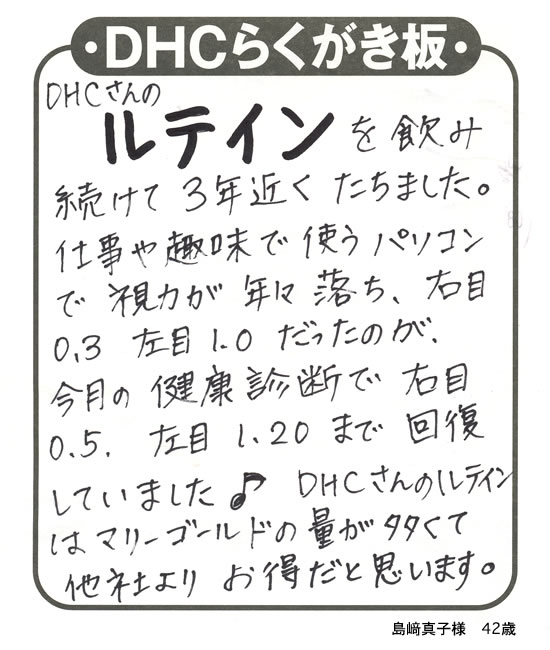 ・DHCらくがき板・
DHCさんの
ルテインを飲み
続けて3年近くたちました。
仕事や趣味で使うパソコン
で視力が年々落ち、右目
0.3 左目1.0 だったのが、
今月の健康診断で右目
0.5. 左目 1.20 まで回復
していました♪ DHCさんのルテイン
はマリーゴールドの量が多くて
他社よりお得だと思います。
島﨑真子様 42歳